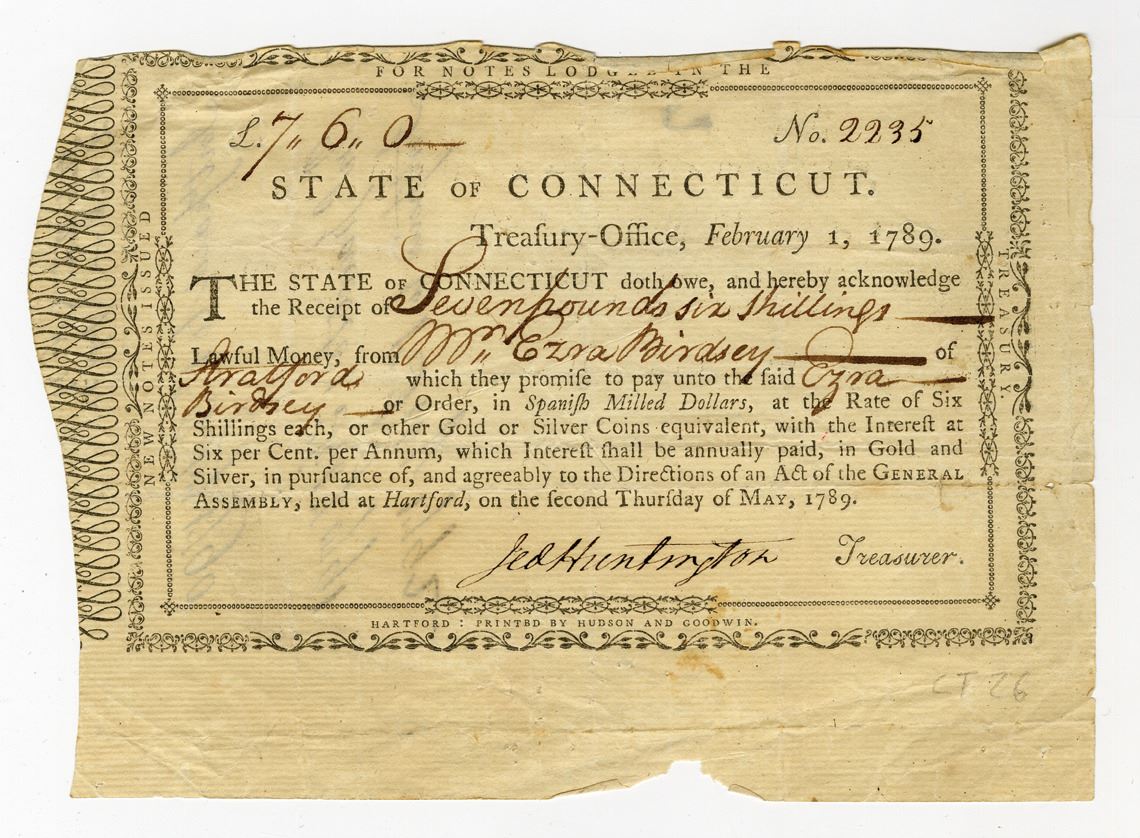 FOR NOTES LODGED IN THE
£.7,, 6,, 0
No. 2235
STATE OF CONNECTICUT.
Treaſury-Office, February 1, 1789.
THE STATE OF CONNECTICUT doth owe, and hereby acknowledge
the Receipt of Seven pounds six shillings
Lawful Money, from Mr,, Ezra Birdsey of
Stratford which they promiſe to pay unto the ſaid Ezra
Birdsey or Order, in Spaniſh Milled Dollars, at the Rate of Six
Shillings each, or other Gold or Silver Coins equivalent, with the Intereſt at
Six per Cent. per Annum, which Intereſt ſhall be annually paid, in Gold and
Silver, in purſuance of, and agreeably to the Directions of an Act of the GENERAL
ASSEMBLY, held at Hartford, on the ſecond Thurſday of MAY, 1789.
Jed Huntington Treasurer.
HARTFORD : PRINTED BY HUDSON AND GOODWIN.
NEW NOTES ISSUED
TREASURY.
CT 26